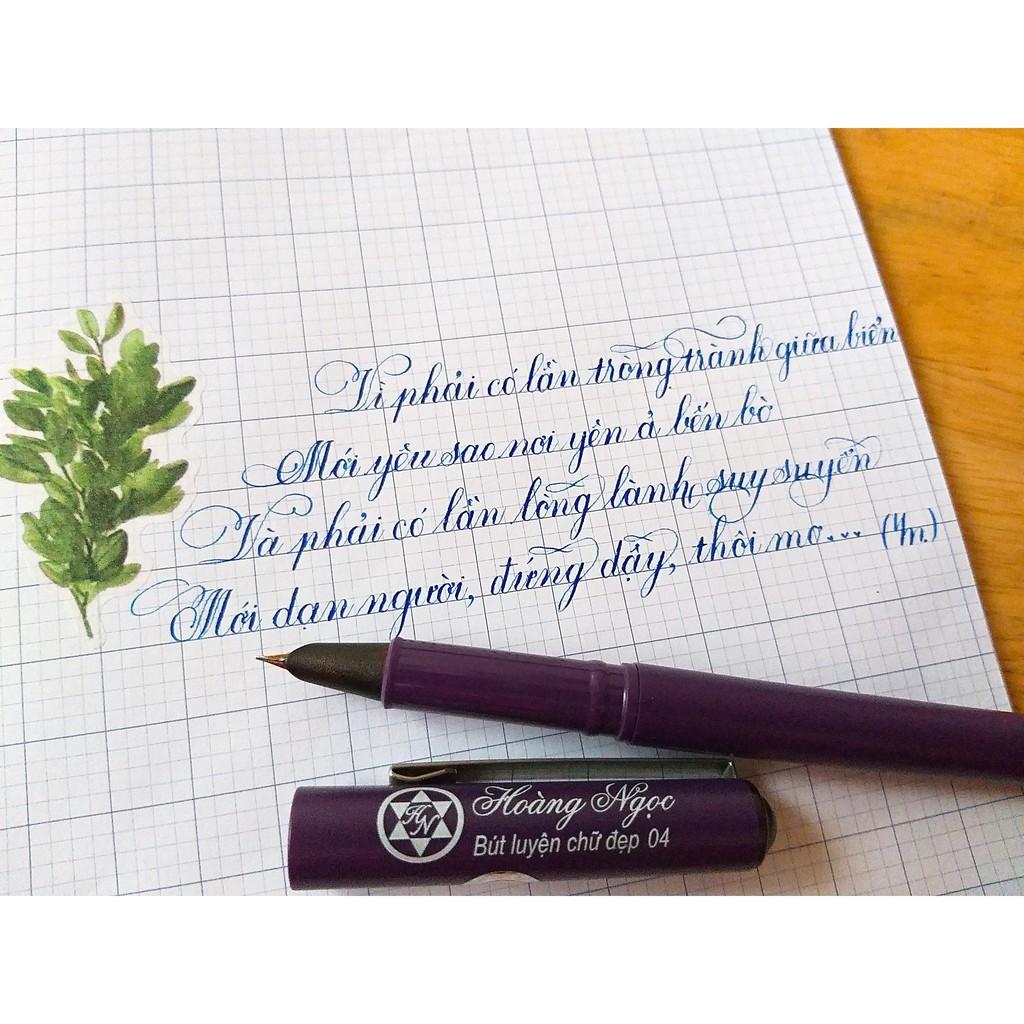 Vì phải có lần tròng trành giữa biển
Mới yêu sao nơi yên ả bến bờ
Và phải có lần lòng lành suy suyển
Mới dạn người, đứng dậy, thôi mơ... (4/n.)
Hoàng Ngọc
HN
Bút luyện chữ đẹp 04